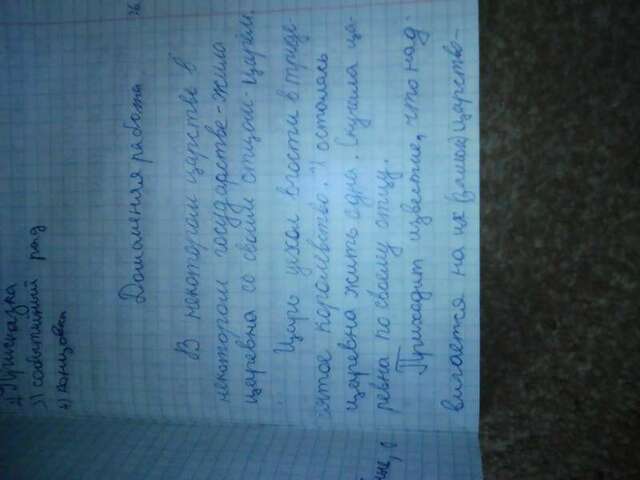 2) Присказка
3) событийный ряд
4) концовка
Домашняя работа
В некотором царстве в
некотором государстве - жила
царевна со своим отцом - царём.
Царь уехал в гости в триде-
вятое королевство. И осталась
царевна жить одна. Скучала ца-
ревна по своему отцу.
Приходит известие, что над-
вигается на не царство-